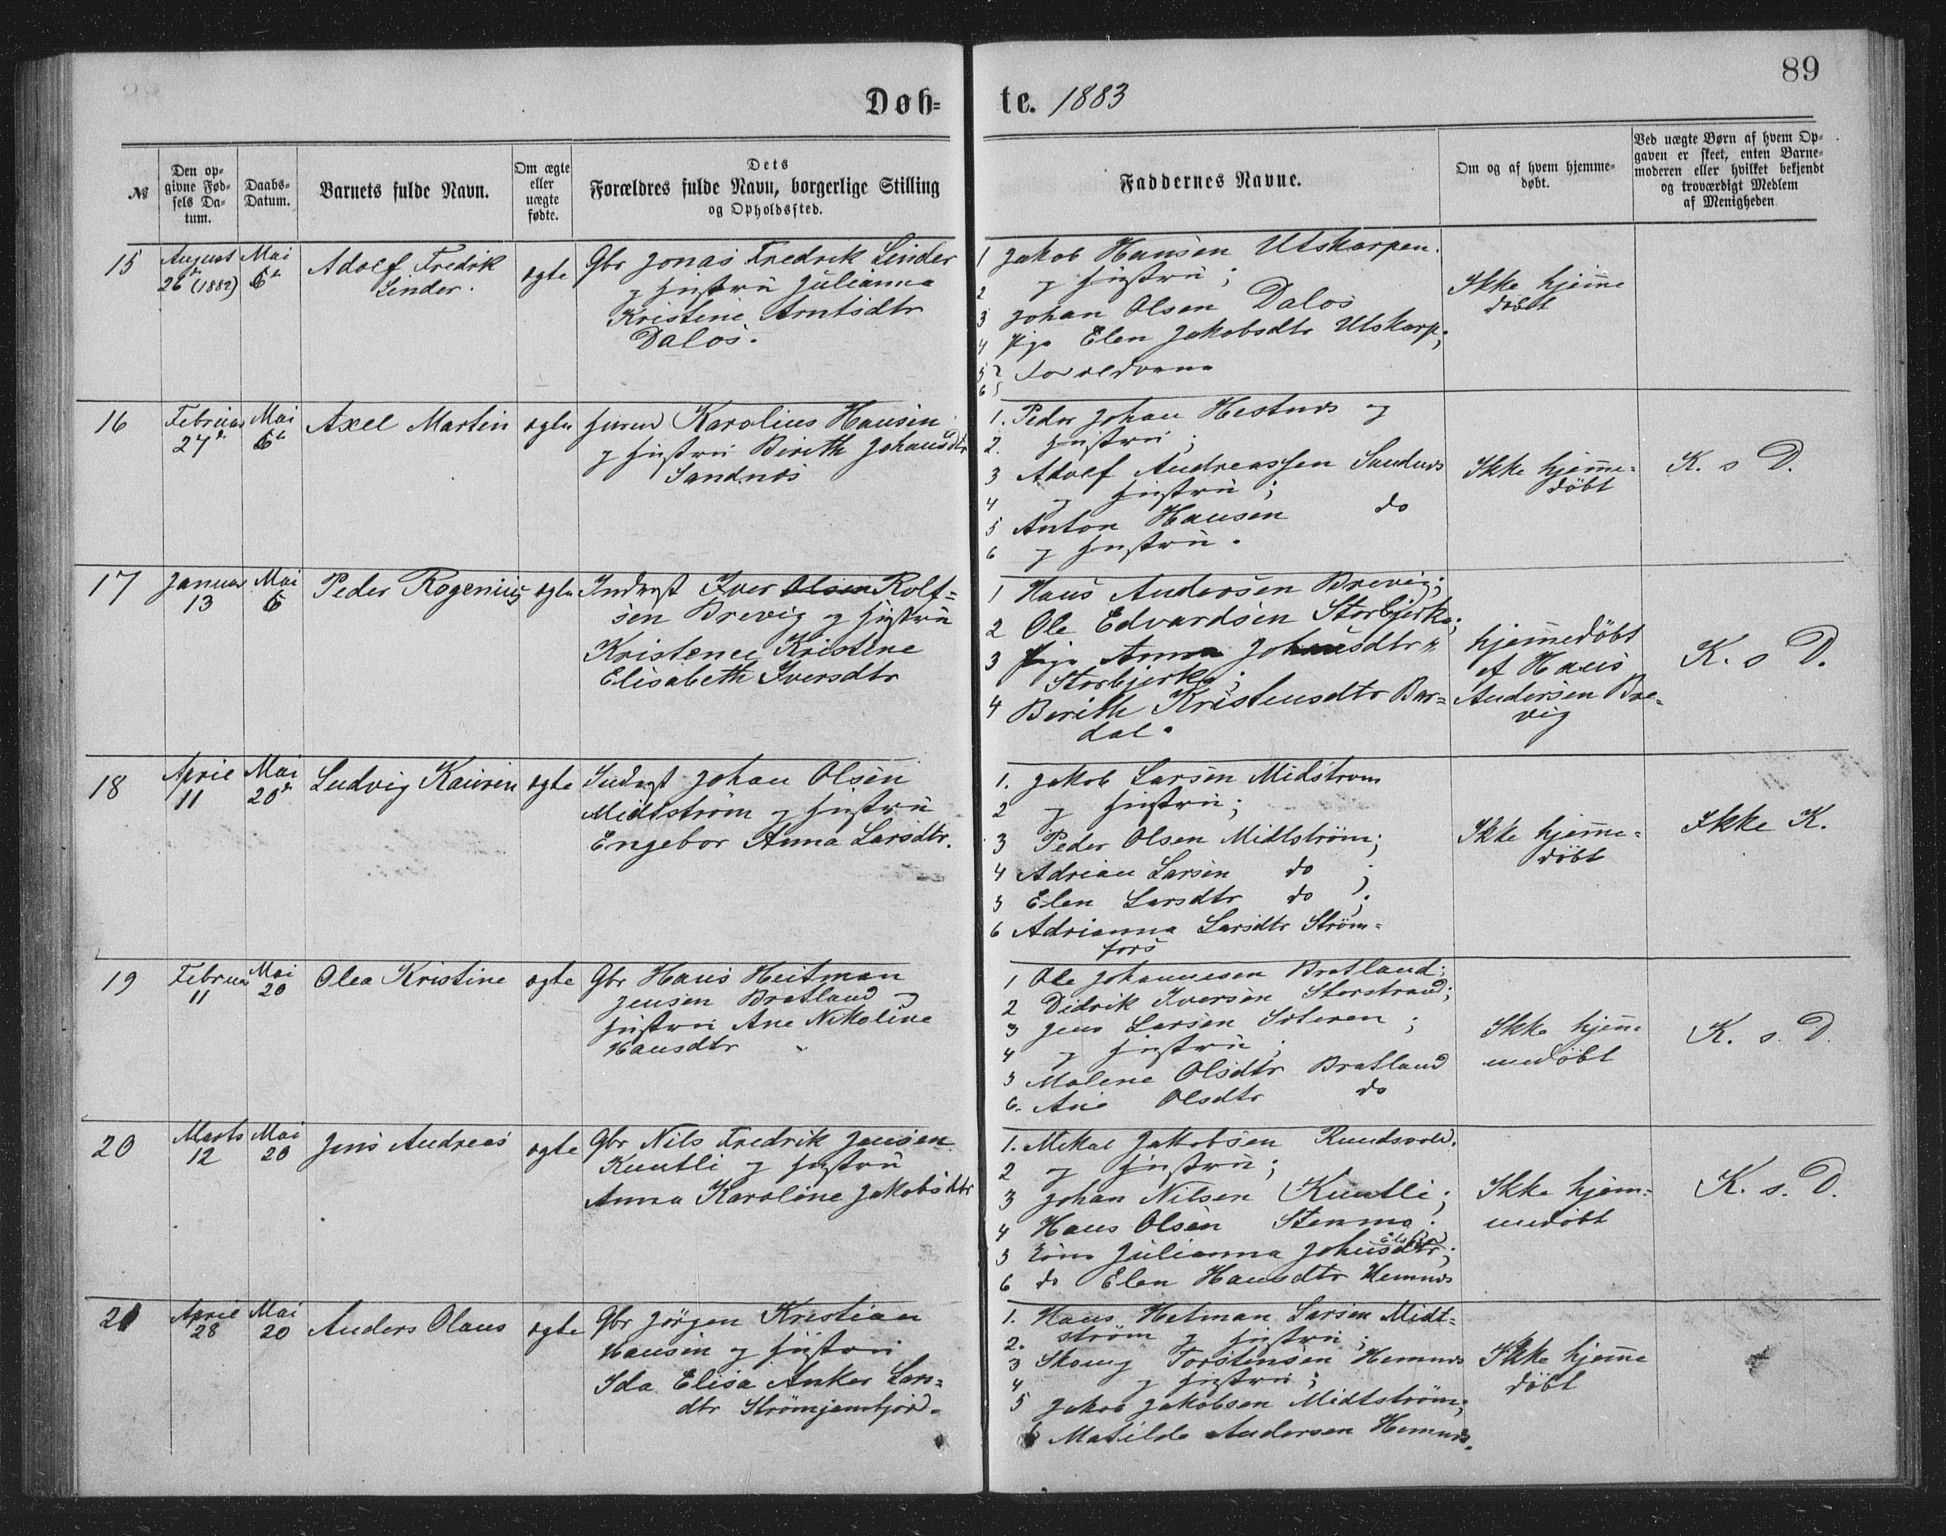 89
Døb- te. 1883
№
Den op-
givne Fød-
sels Da-
tum.
Daabs-
Datum.
Barnets fulde Navn.
Om ægte
eller
uægte
fødte.
Dets
Forældres fulde Navn, borgerlige Stilling
og Opholdssted.
Faddernes Navne.
Om og af hvem hjemme-
døbt.
Ved uægte Børn af hvem Op-
gaven er skeet, enten Barne-
moderen eller hvilket bekjendt
og troværdigt Medlem
af Menigheden
15
August
26 (1882)
Mai
6
Adolf Fredrik
Linder.
ægte
Gbr Jonas Fredrik Linder
og Hustru Julianna
Kristine Arntsdtr
Dalos.
1 Jakob Hansen Utskarpen.
2 og Hustru;
3 Johan Olsen Dalos
4 Pige Elen Jakobsdtr Utskarp;
5
6 Forældrene
Ikke hjemme
døbt
16
Februar
27
Mai
6
Axel Martin
ægte
Karolius Hansen
og Hustru Birith Johansdtr
Sandnes
1. Peder Johan Hestnes og
2. Hustru;
3 Adolf Andreassen Sandnes
4 og Hustru;
5 Anton Hansen do
6 og Hustru.
Ikke hjemme-
døbt
K. s D.
17
Januar
13
Mai
6
Peder Rogenius
ægte
Inderst Iver Olsen Rolf-
sen Brevig og Hustru
Kristence Kristine
Elisabeth Iversdtr
1 Hans Andersen Brevig;
2 Ole Edvardsen Storbjerka;
3 Pige Anna Johansdtr
Storbjerka;
4 Berith Kristensdtr Bar-
dal.
hjemmedøbt
af Hans
Andersen Bre-
vig
K. s D.
18
April
11
Mai
20
Ludvig Kaurin
ægte
Inderst Johan Olsen
Midtstrøm og Hustru
Engebor Anna Larsdtr.
1. Jakob Larsen Midstrøm
2 og Hustru;
3 Peder Olsen Midtstrøm;
4 Adrian Larsen do ;
5 Elen Larsdtr do ;
6 Adrianna Larsdtr Strøm-
fors
Ikke hjemme-
døbt
Ikke K.
19
Februar
11
Mai
20
Olea Kristine
ægte
Gbr Hans Heitman
Jensen Bratland og
Hustru Ane Nikoline
Hansdtr
1 Ole Johannesen Bratland;
2 Didrik Iversen Storstrand;
3 Jens Larsen ;
4 og Hustru;
5 Malene Olsdtr Bratland
6. Ane Olsdtr do
Ikke hjem
medøbt
K. s. D.
20
Marts
12
Mai
20
Jens Andreas
ægte
Gbr Nils Fredrik Jensen
Kuntli og Hustru
Anna Karoline Jakobsdtr
1. Mikal Jakobsen Rundvold.
2 og Hustru;
3 Johan Nilsen Kuntli;
4 Hans Olsen Stenmo.
5 Julianna Johnsdtr;
6 do Elen Hansdtr Hemnes
Ikke hjem-
medøbt
K. s. D.
21
April
28
Mai
20
Anders Olaus
ægte
Gbr Jörgen Kristian
Hansen og Hustru
Ida Elisa Anker Lars-
dtr
1. Hans Hetman Larsen Midt-
2. strøm og Hustru;
3 Torstensen Hemnes
4 og Hustru;
5 Jakob Jakobsen Midtstrøm;
6 Matilde Andersen Hemnes.
Ikke hjemme
døbt